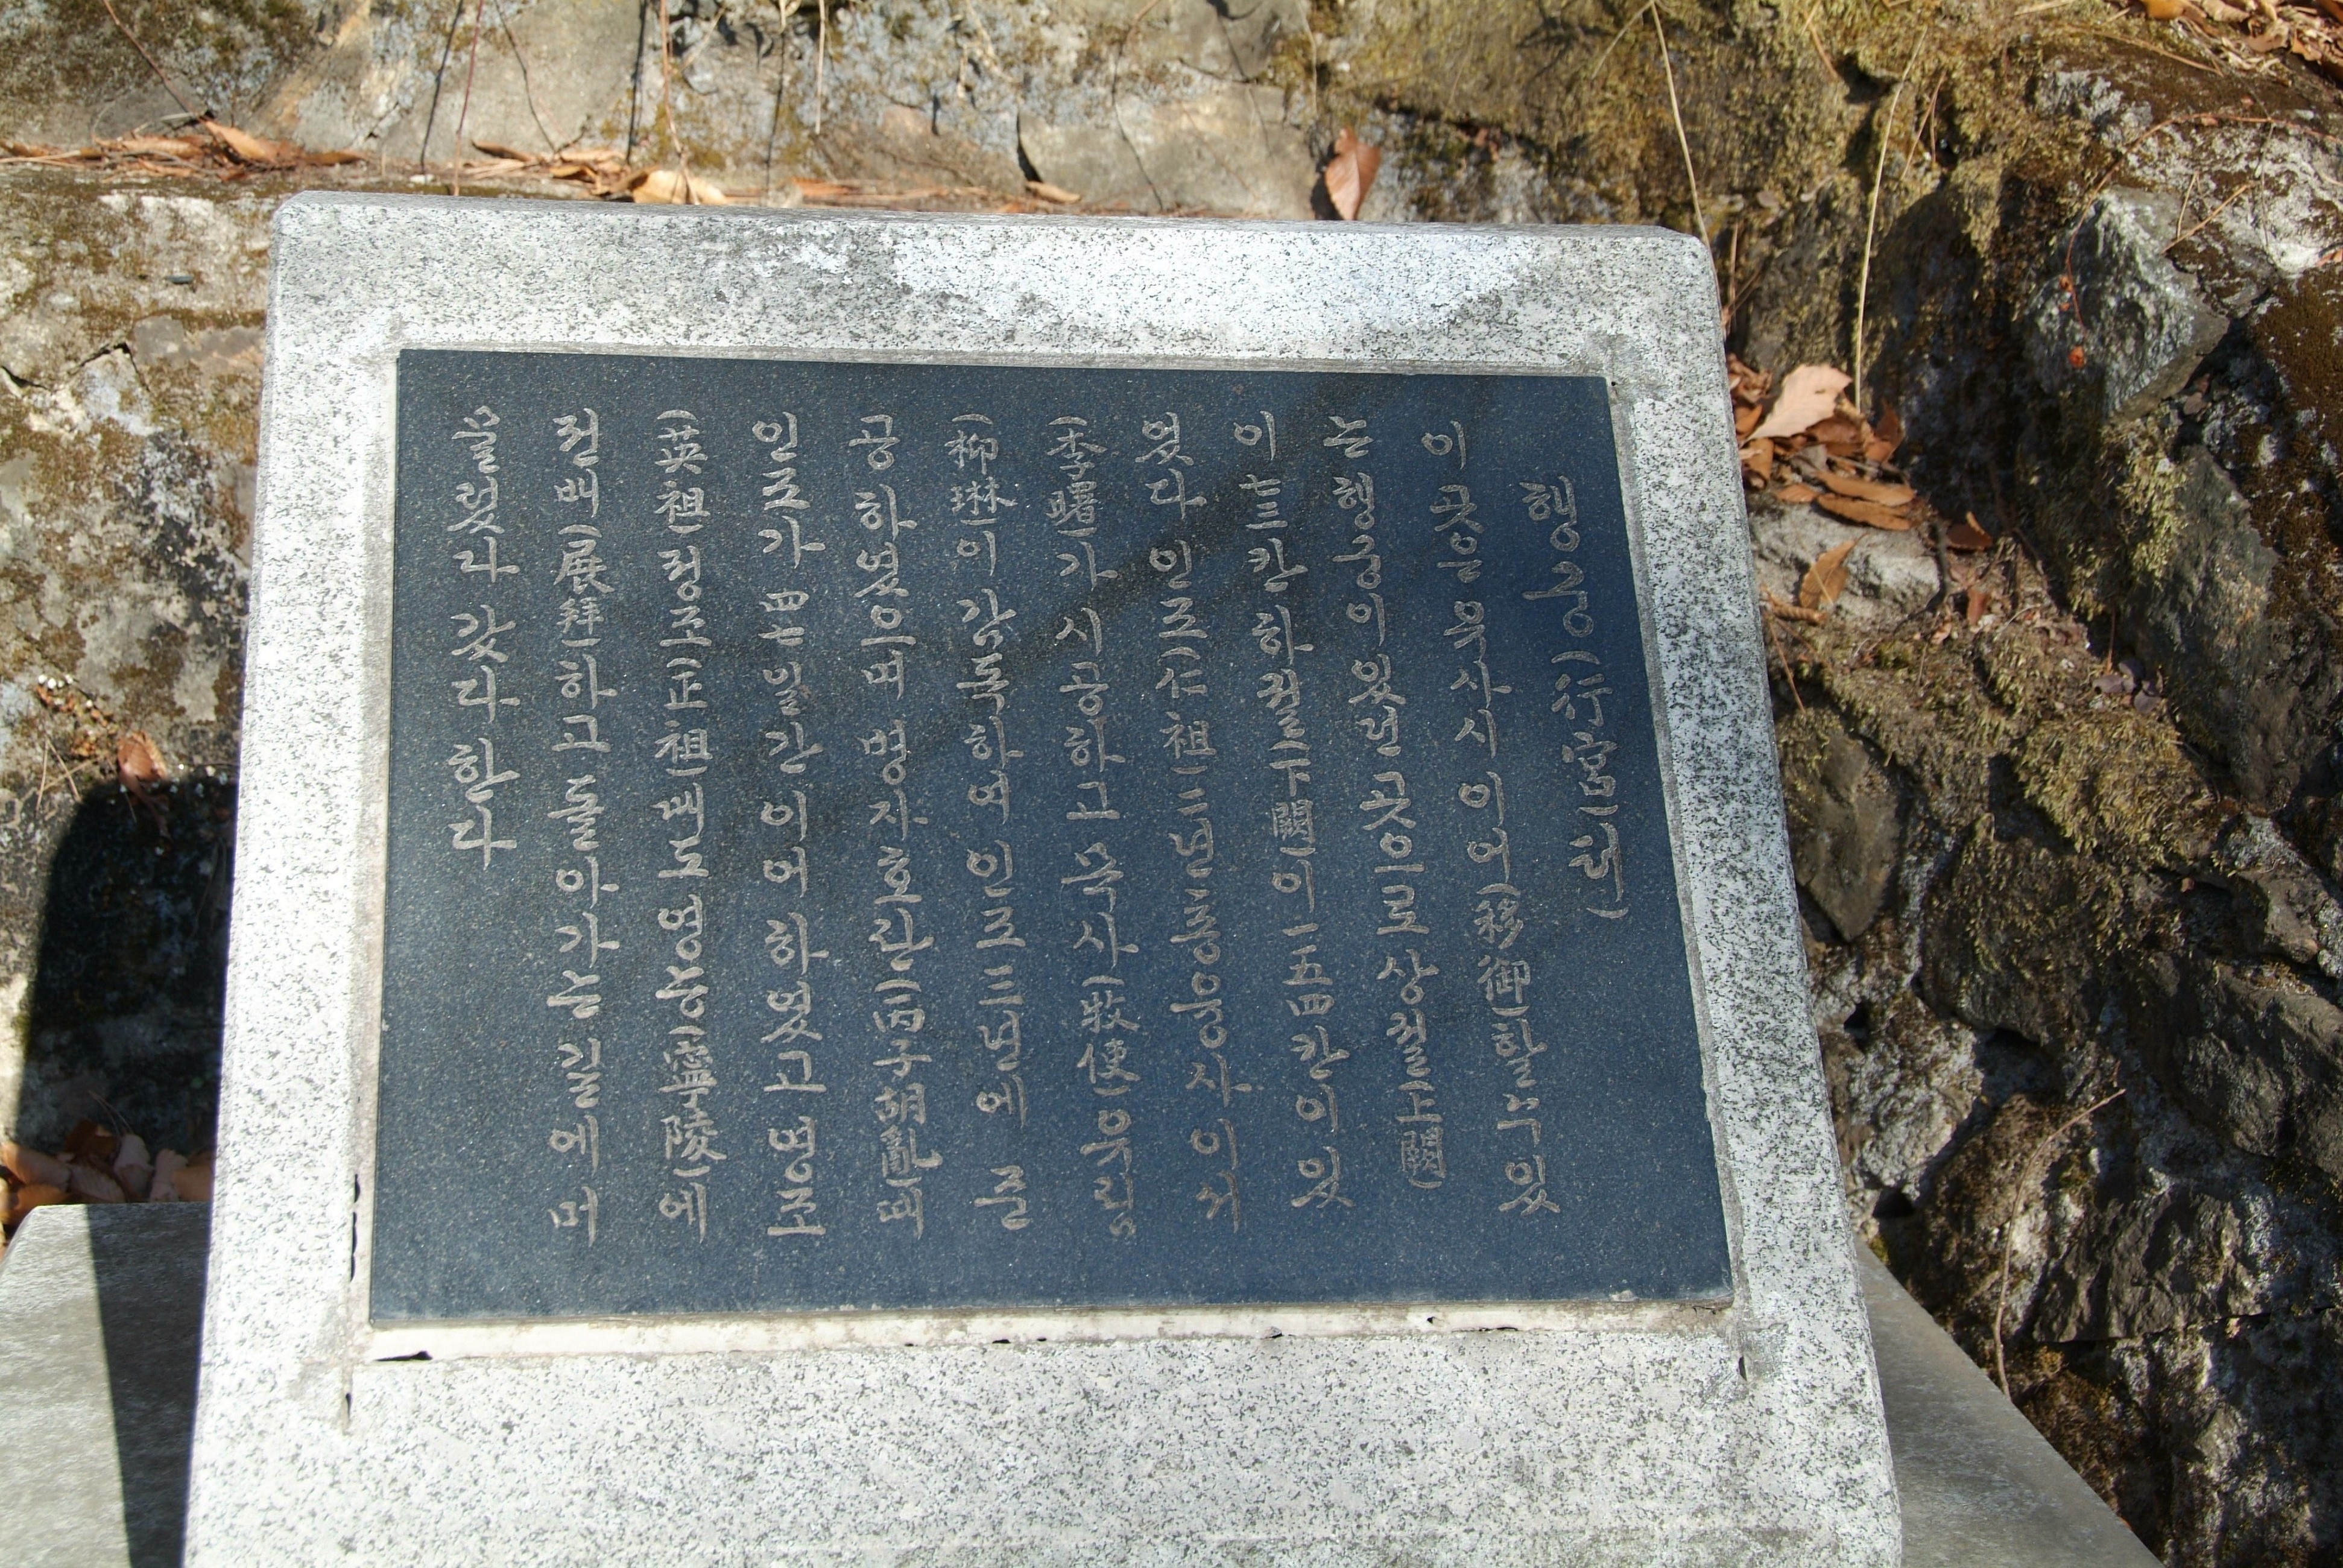 행궁(行宮)터
이 곳은 유사시 이어(移御)할 수 있
는 행궁이 있던 곳으로 상궐(上闕)
이 七三칸 하궐(下闕)이 一五四칸이 있
었다 인조(仁祖)二년 총융사 이서
(李曙)가 시공하고 목사(牧使)유림
(柳琳)이 감독하여 인조三년에 준
공하였으며 병자호란(丙子胡亂)때
인조가 四七일간 이어하였고 영조
(英祖)정조(正祖)때도 영능(寧陵)에
전배(展拜)하고 돌아가는 길에 머
물렀다 갔다 한다